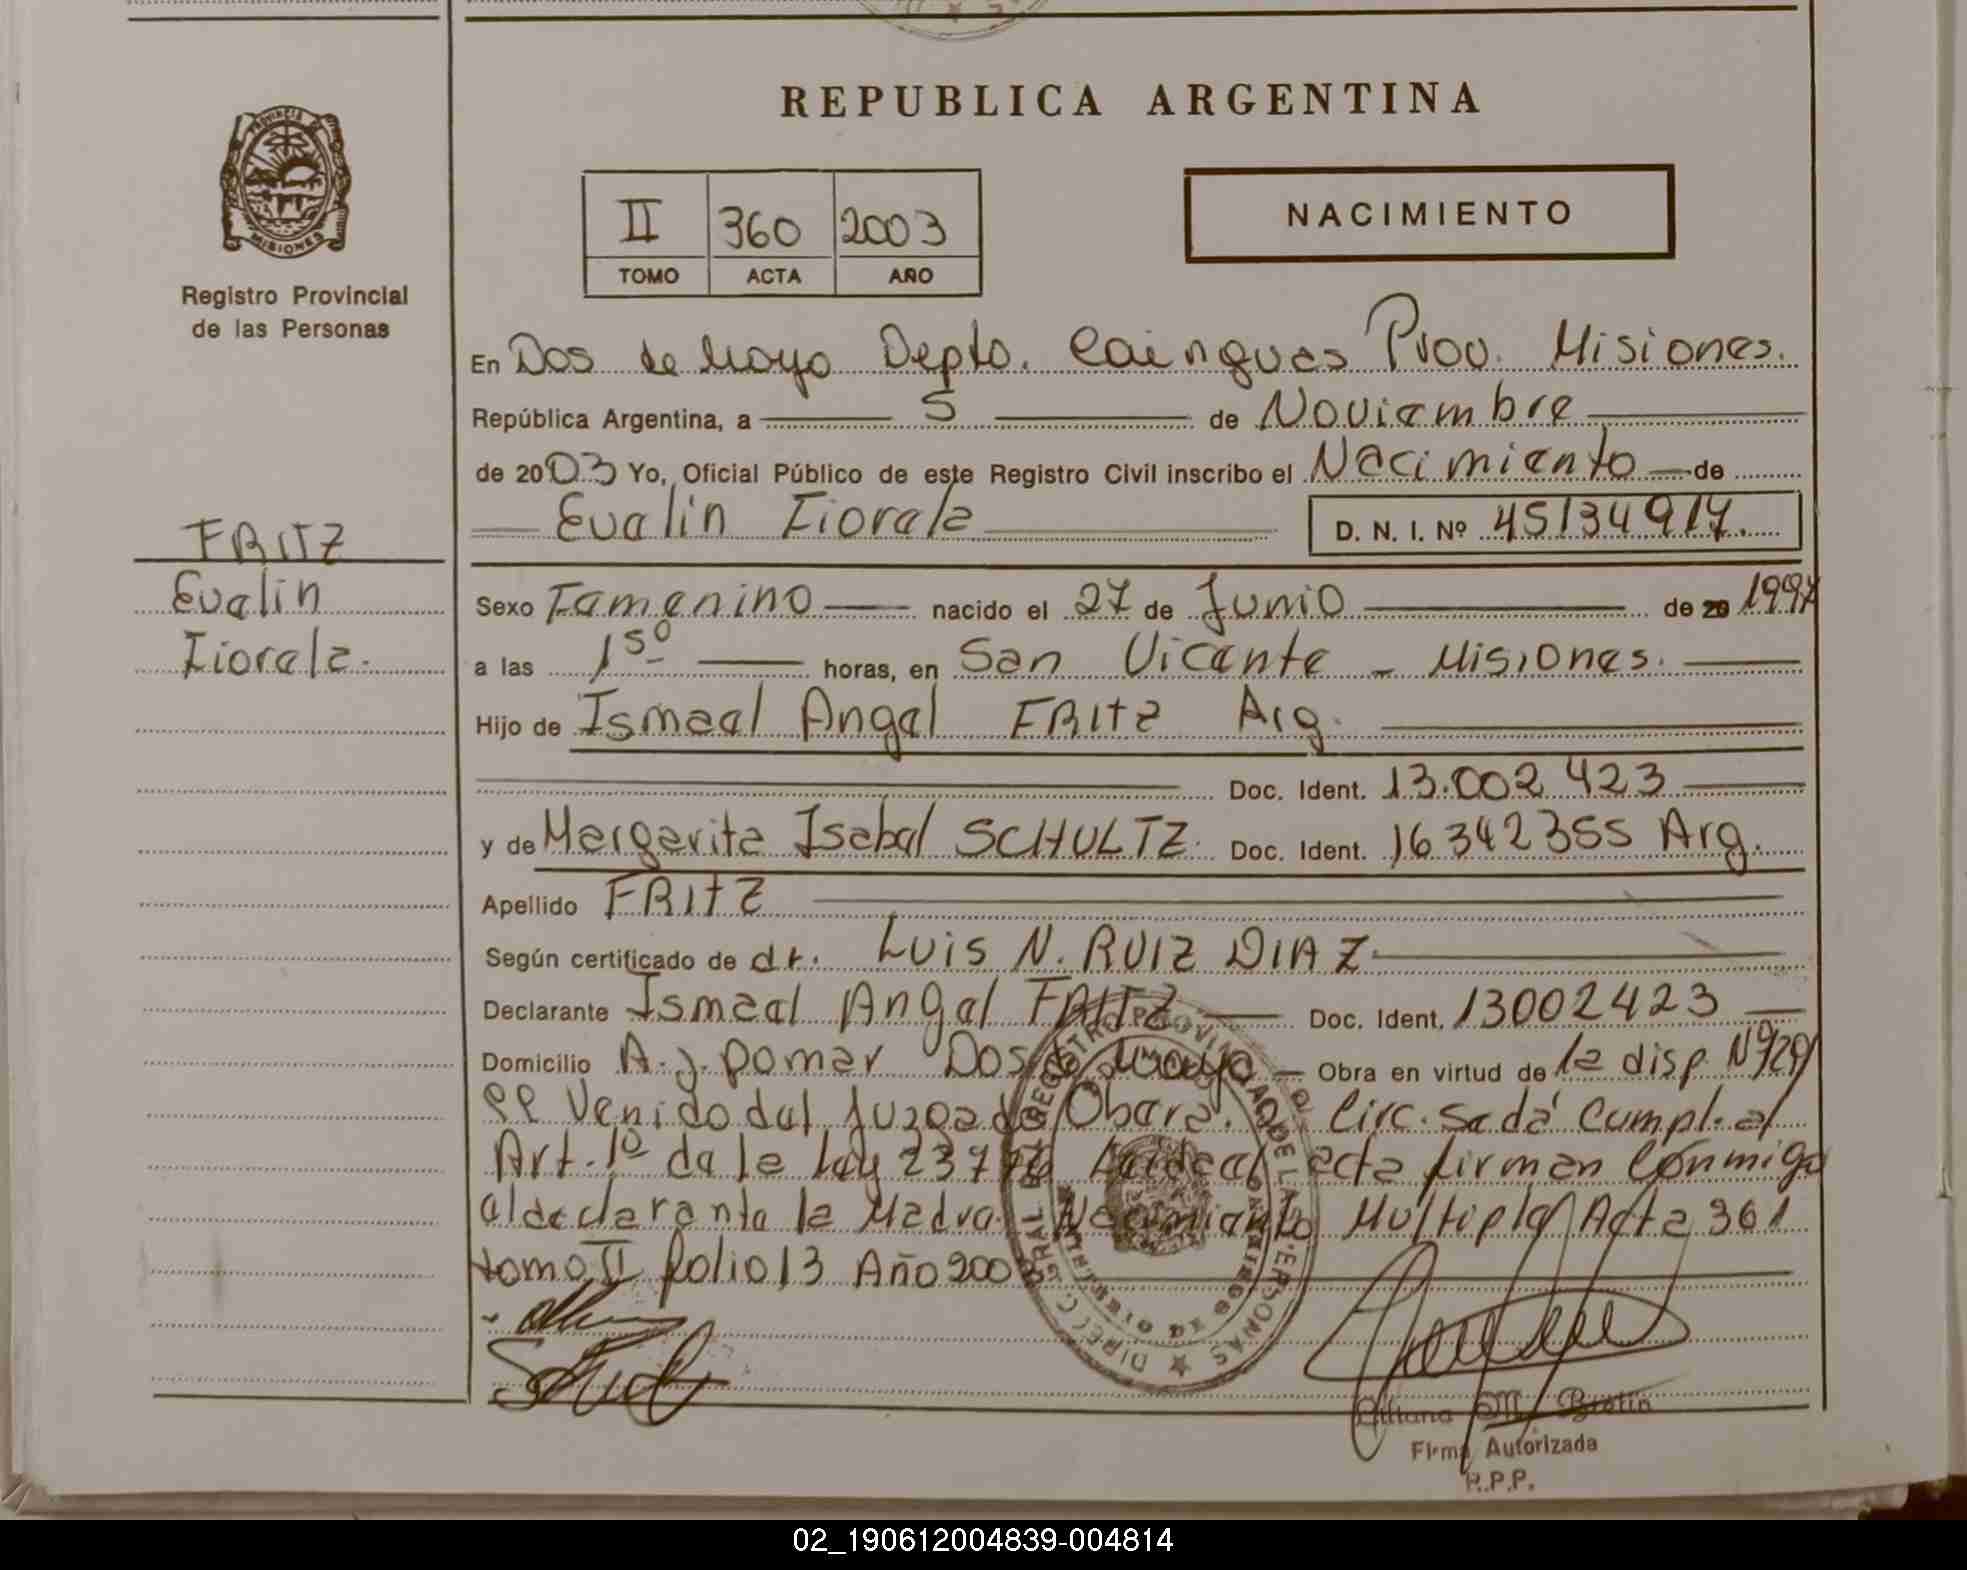 REPUBLICA ARGENTINA
PROVINCIA DE
MISIONES
Registro Provincial
de las Personas
II 360 2003
TOMO ACTA AÑO
NACIMIENTO
En Dos de Mayo Depto. Cainguas Prov. Misiones.
República Argentina, a 5 de Noviembre
de 2003 Yo, Oficial Público de este Registro Civil inscribo el Nacimiento de
Evelin Fiorela D. N. I. Nº 45134917.
FRITZ
Evelin
Fiorela.
Sexo Femenino nacido el 27 de Junio de 20 1997
a las 15º horas, en San Vicente - Misiones.
Hijo de Ismael Angel FRITZ Arg.
Doc. Ident. 13.002 423
y de Margarita Isabel SCHULTZ. Doc. Ident. 16342355 Arg.
Apellido FRITZ
Según certificado de dr. Luis N. RUIZ DIAZ
Declarante Ismael Angel FRITZ Doc. Ident. 13002423
Domicilio A. J. Pomar Dos de Mayo Obra en virtud de la disp Nº
Venido del Juzgado Obera. Circ. Se da cumpl. al
Art. 1º de la Ley acta firman Conmigo
al declarante la Madre. Nacimiento Multiple Acta 361
tomo II folio 13 Año 2003
DIRECC. GRAL. DEL REGISTRO PROVINCIAL DE LAS PERSONAS
Firma Autorizada
R.P.P.
02_190612004839-004814